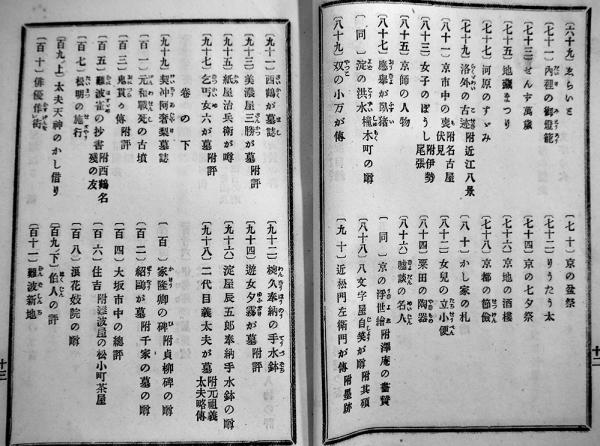 〔六十九〕ゑらいさ
〔七十〕京の盆祭
〔七十一〕內裡の御燈籠
〔七十二〕りうたう太
〔七十三〕せんず萬歲
〔七十四〕京の七夕祭
〔七十五〕地藏まつり
〔七十六〕京地の酒樓
〔七十七〕河原のすゞみ
〔七十八〕京都の節儉
〔七十九〕洛外の古迹 附近江八景
〔八十〕かし家の札
〔八十一〕京市中の喪 附名古屋伏見
〔八十二〕女兒の立小便
〔八十三〕女子のぼうし 附伊勢尾張
〔八十四〕粟田の陶器
〔八十五〕京師の人物
〔八十六〕噓談の名人
〔八十七〕應擧が臥猪
〔同〕京の浮世繪 附澤庵の畫贊
〔同〕淀の洪水 橦木町の贈
〔八十八〕八文字屋自笑が贈 附其磧
〔八十九〕双の小万が傳
〔九十〕近松門左衞門が傳 附墨跡
十二
〔九十一〕西鶴が墓誌
〔九十二〕椀久奉納の手水鉢
〔九十三〕美濃屋三勝が墓 附評
〔九十四〕遊女夕霧が墓 附評
〔九十五〕紙屋治兵衞が噂
〔九十六〕淀屋辰五郎奉納手水鉢の贈
〔九十七〕乞丐女六が墓 附評
〔九十八〕二代目義太夫が墓 附元祖義太夫略傳
卷の下
〔九十九〕契沖阿奢梨墓誌
〔百〕家隆卿の碑 附貞柳碑の贈
〔百一〕元和戰死の古墳
〔百二〕紹鷗が墓 附千家の墓の贈
〔百三〕鬼貫が傳 附評
〔百四〕大坂市中の總評
〔百五〕難波雀の抄書 附西鶴名殘の友
〔百六〕住吉 附難波屋の松小町茶屋
〔百七〕松明の施行
〔百八〕浪花妓院の贈
〔百九上〕太夫天神のかし借り
〔百九下〕伯人の評
〔百十〕俳優作者
〔百十一〕難波新地
十三